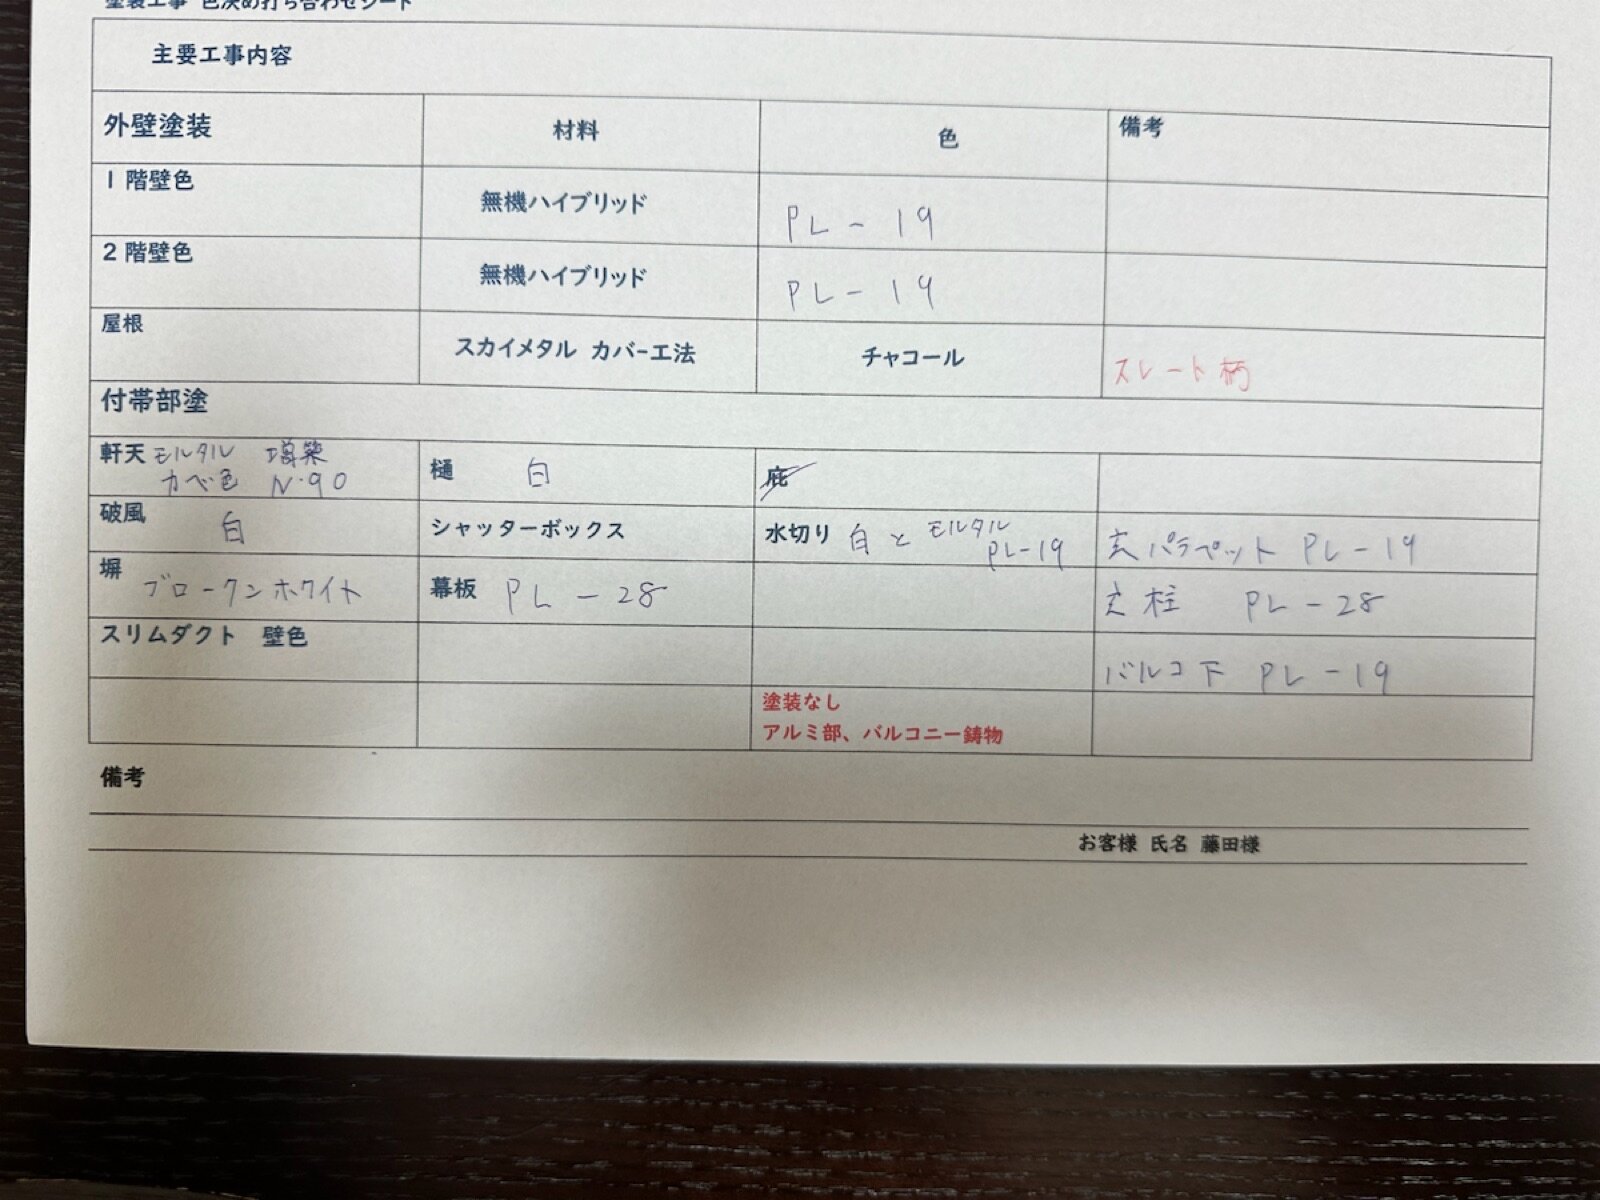 塗装工事 色決め打ち合わせシート
主要工事内容
外壁塗装 材料 色 備考
1階壁色 無機ハイブリッド PL-19
2階壁色 無機ハイブリッド PL-19
屋根 スカイメタル カバー工法 チャコール スレート柄
付帯部塗
軒天 モルタル 増築 樋 白 庇
カベ色 N-90
破風 白 シャッターボックス 水切り 白とモルタル PL-19 玄パラペット PL-19
塀 ブロークンホワイト 幕板 PL-28 玄柱 PL-28
スリムダクト 壁色 バルコ下 PL-19
塗装なし
アルミ部、バルコニー鋳物
備考
お客様 氏名 藤田様